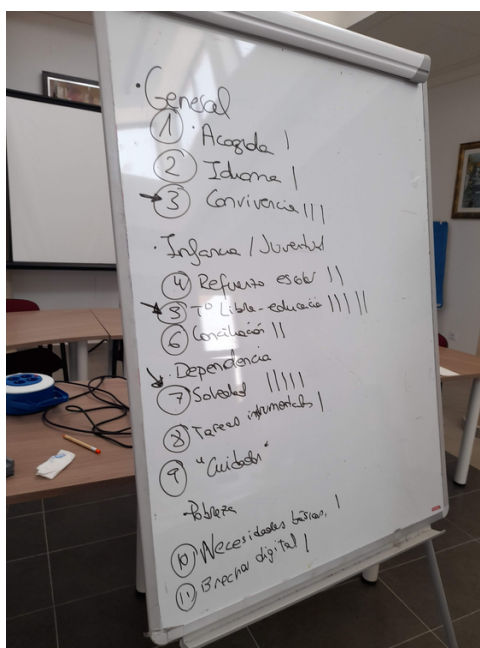 · General
1 · Acogida |
2 Idioma |
→ 3 Convivencia |||
· Infancia / Juventud
4 Refuerzo escolar ||
→ 5 Tº Libre - educación |||||
6 Conciliación ||
· Dependencia
→ 7 Soledad |||||
8 Tareas instrumentales |
9 "Cuidador"
Pobreza
10 Necesidades básicas, |
11 Brecha digital |